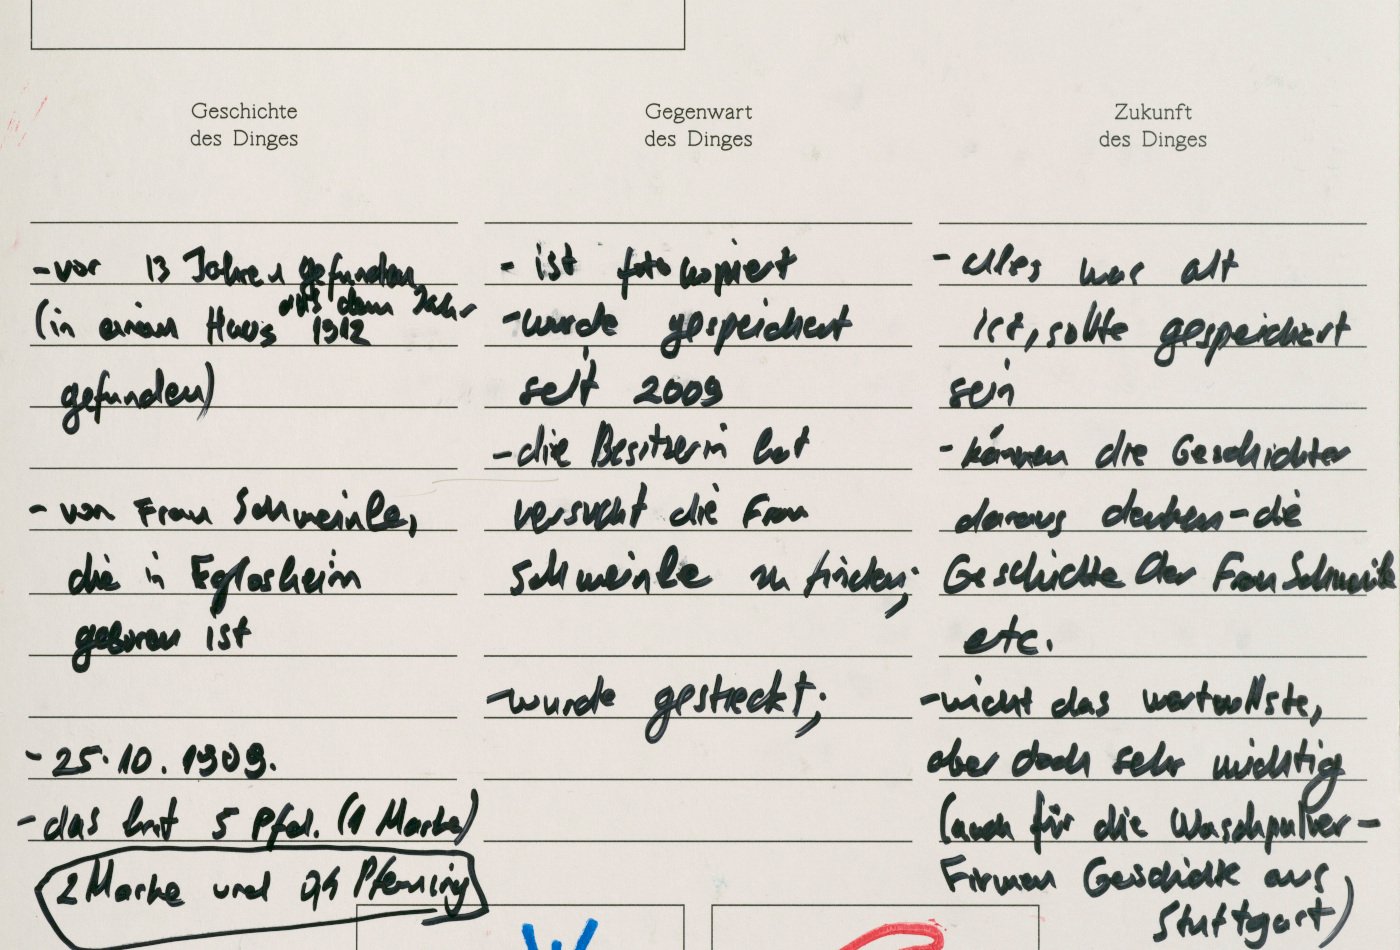 Geschichte
des Dinges
- vor 13 Jahren gefunden
(in einem Haus aus dem Jahr
1912
gefunden)
- von Frau Schweinle,
die in Eglosheim
geboren ist
- 25.10.1909.
- das hat 5 Pfd. (1 Marke)
2 Marke und 94 Pfenning
Gegenwart
des Dinges
- ist fotokopiert
- wurde gespeichert
seit 2009
- die Besitzerin hat
versucht die Frau
Schweinle zu finden;
- wurde gestreckt;
Zukunft
des Dinges
- alles was alt
ist, sollte gespeichert
sein
- können die Geschichter
daraus denken - die
Geschichte der Frau Schweinle
etc.
- nicht das wertvollste,
aber doch sehr wichtig
(auch für die Waschpulver-
Firmen Geschichte aus
Stuttgart)